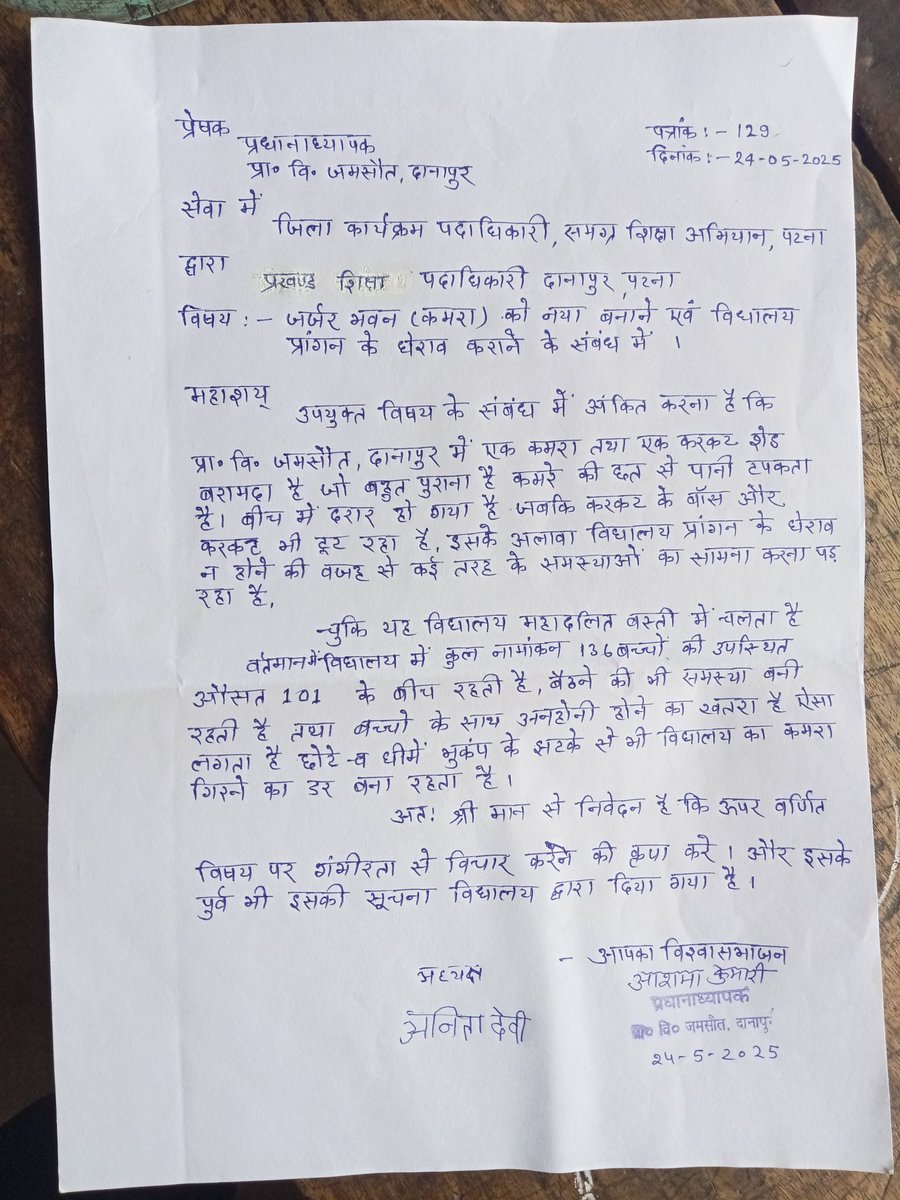 प्रेषक
प्रधानाध्यापक
प्रा० वि० जमसौत, दानापुर
पत्रांक :- 129
दिनांक :- 24-05-2025
सेवा में
जिला कार्यक्रम पदाधिकारी, समग्र शिक्षा अभियान, पटना
द्वारा
प्रखण्ड शिक्षा पदाधिकारी दानापुर, पटना
विषय :- जर्जर भवन (कमरा) को नया बनाने एवं विधालय
प्रांगन के घेराव कराने के संबंध में ।
महाशय्
उपयुक्त विषय के संबंध में अंकित करना है कि
प्रा० वि० जमसौत, दानापुर में एक कमरा तथा एक करकट शेड
बरामदा है जो बहुत पुराना है कमरे की छत से पानी टपकता
है। बीच में दरार हो गया है जबकि करकट के बॉस और
करकट भी टूट रहा है, इसके अलावा विधालय प्रांगन के घेराव
न होने की वजह से कई तरह के समस्याओं का सामना करना पड़
रहा है,
चुकि यह विधालय महादलित वस्ती में चलता है
वर्तमान में विधालय में कुल नामांकन 136 बच्चों की उपस्थित
औसत 101 के बीच रहती है, बैठने की भी समस्या बनी
रहती है तथा बच्चो के साथ अनहोनी होने का खतरा है ऐसा
लगता है छोटे व धीमें भुकंप के झटके से भी विधालय का कमरा
गिरने का डर बना रहता है।
अत: श्री मान से निवेदन है कि ऊपर वर्णित
विषय पर गंभीरता से विचार करने की कृपा करे । और इसके
पुर्व भी इसकी सूचना विधालय द्वारा दिया गया है।
- आपका विश्वासभाजन
अध्यक्ष
आशमा कुमारी
प्रधानाध्यापक
अनिता देवी
प्रा० वि० जमसौत, दानापुर
24-5-2025